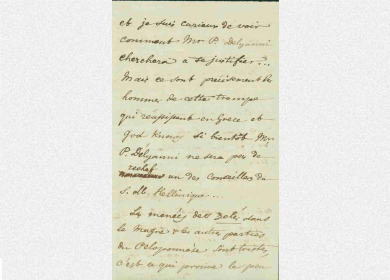 et je suis curieux de voir
comment Mr P. Delyanni
cherchera a se justifier?..
Mais ce sont précisement les
hommes de cette trempe
qui réussissent en Grece et
god knows si bientôt Mr
P. Délyanni ne sera pas de
rechef
un des Conseillers de
S. M. Hellénique...
Les menées de Dolé, dans
le Magne & les autres parties
du Peloponnèse sont tristes,
c'est ce qui prouve le peu